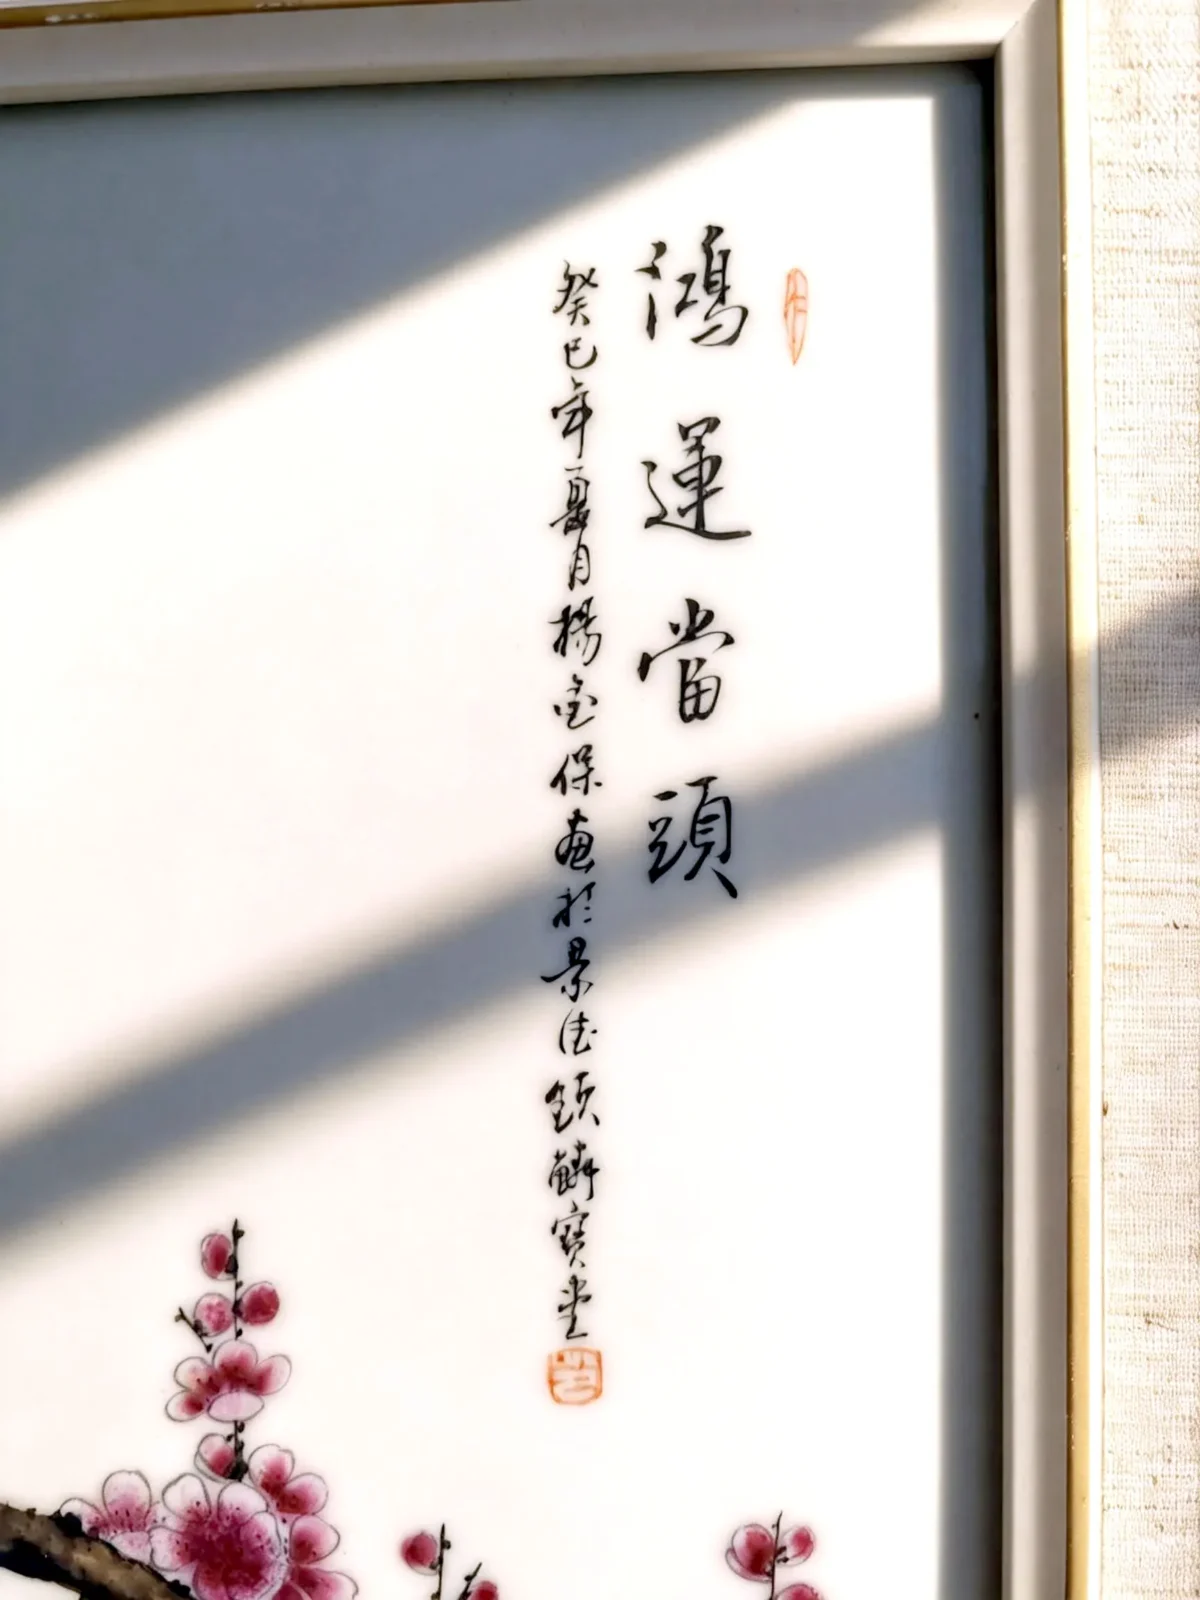 鴻運當頭
癸巳年夏月楊金保畫於景德鎮麟寶堂